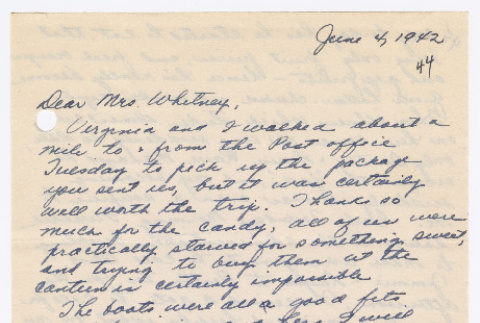 June 4, 1942
44
Dear Mrs. Whitney,
Virginia and I walked about a
mile to & from the Post office
Tuesday to pick up the package
you sent us, but it was certainly
well worth the trip. Thanks so
much for the candy, all of us were
practically starved for something sweet,
and trying to buy them at the
canteen is certainly impossible
The boots were all a good fit.
will